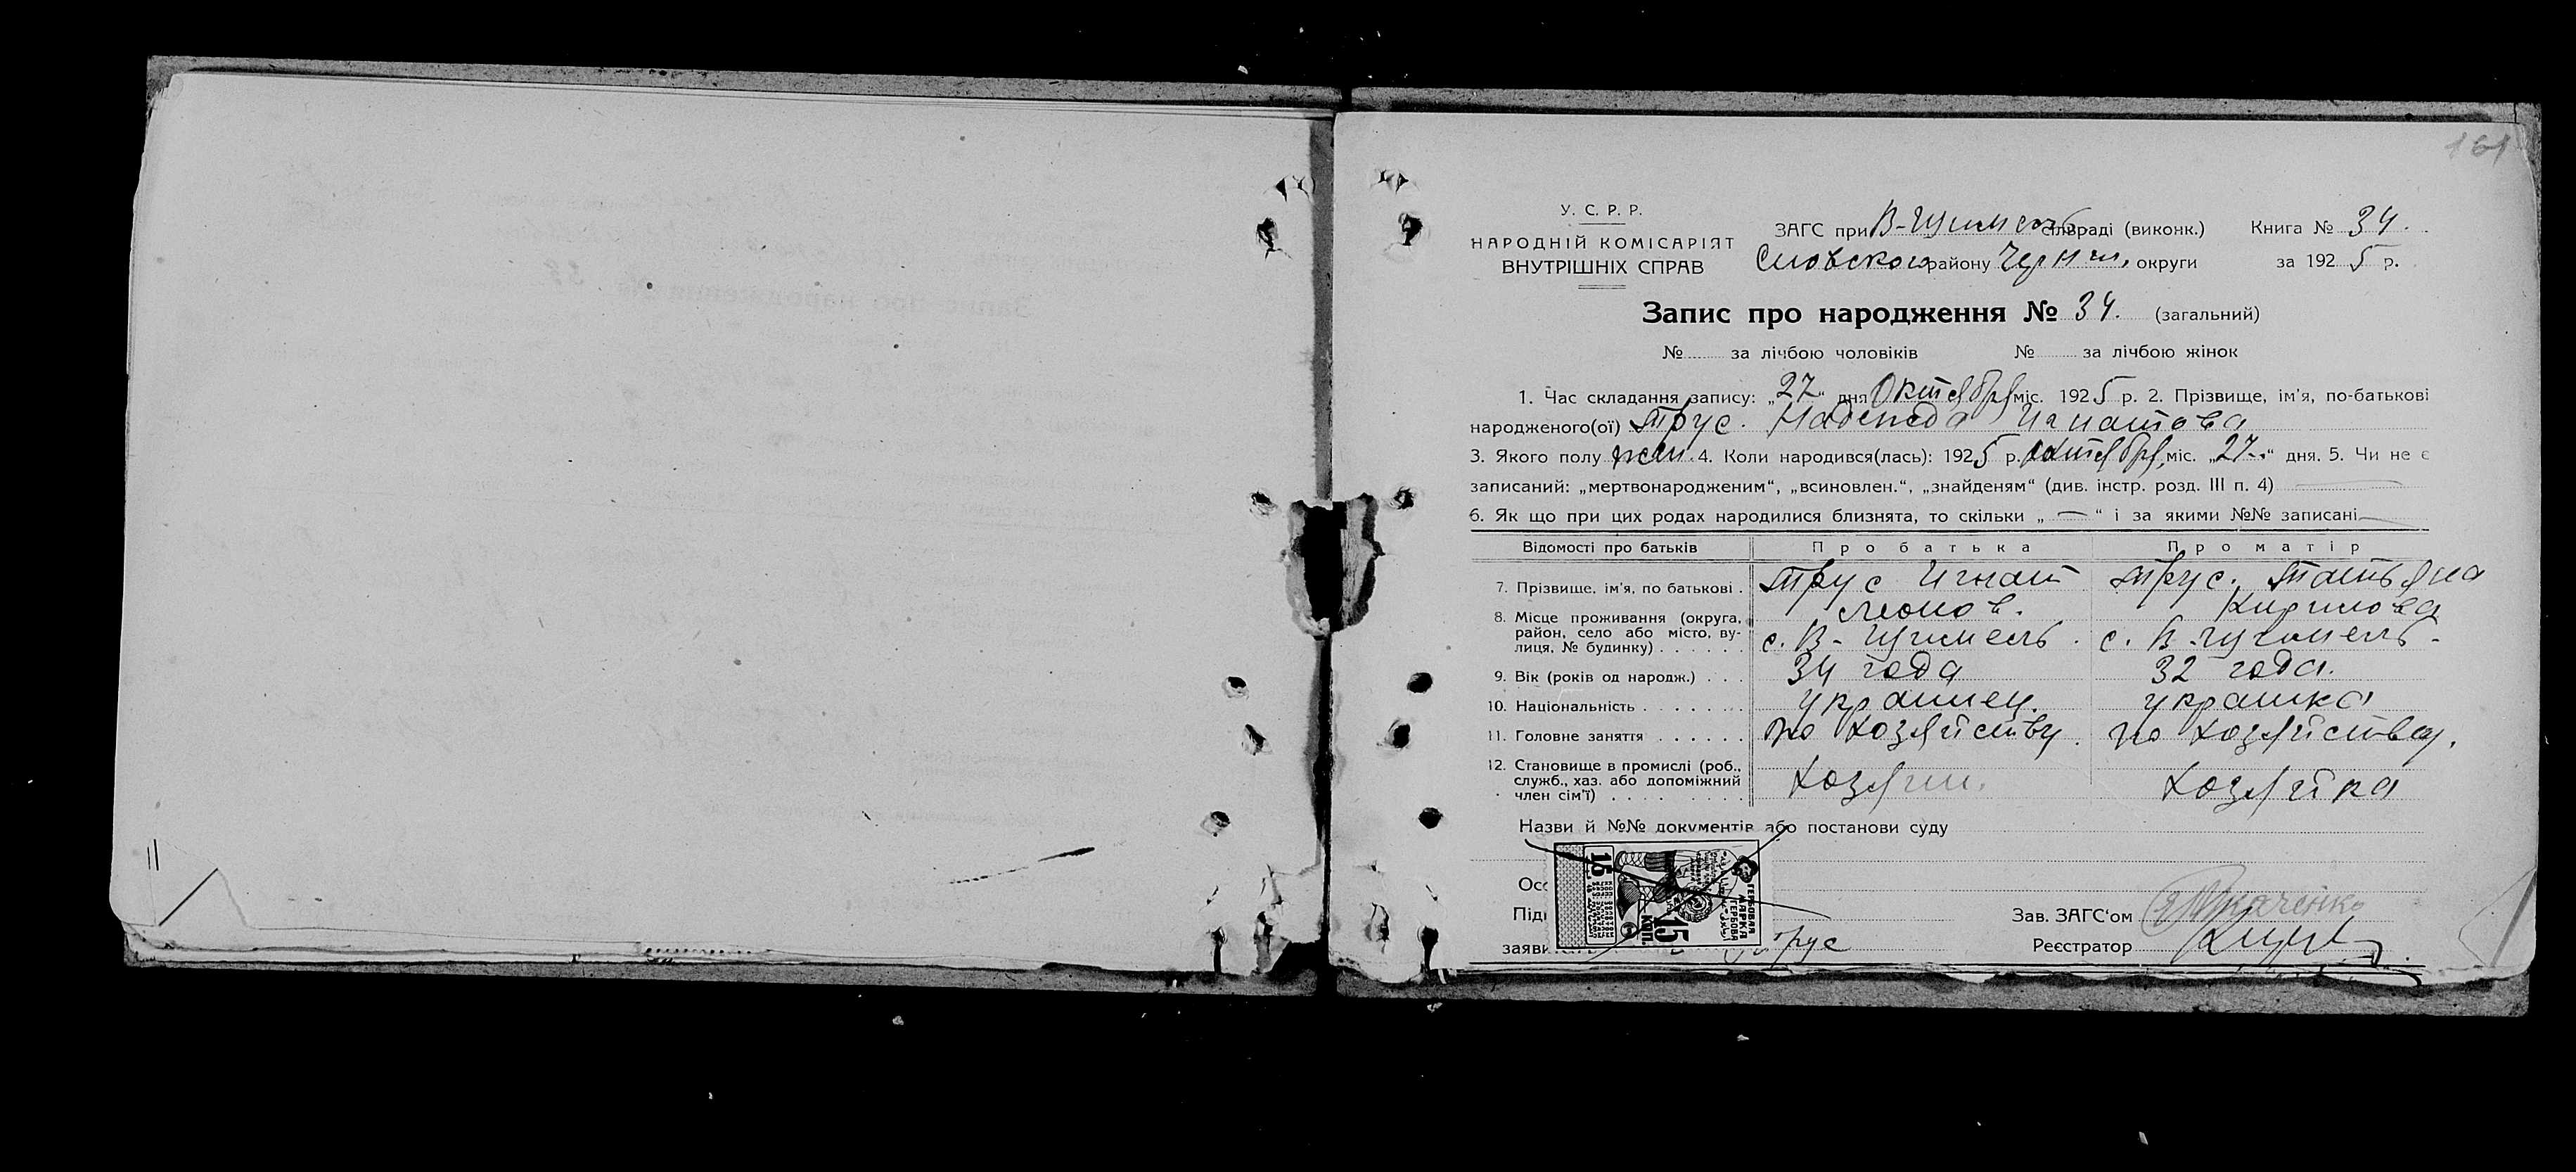 161
У. С. Р. Р.
НАРОДНІЙ КОМІСАРІЯТ
ВНУТРІШНІХ СПРАВ
ЗАГС при В-Щимель сільраді (виконк.) Книга № 34.
Сновского району Черниг. округи за 1925 р.
Запис про народження № 34. (загальний)
№ за лічбою чоловіків № за лічбою жінок
1. Час складання запису: „27“ дня Октября міс. 1925 р. 2. Прізвище, ім'я, по-батькові
народженого(ої) Трус. Надежда Игнатова
3. Якого полу жен. 4. Коли народився(лась): 1925 р. октября, міс. „27“ дня. 5. Чи не є
записаний: „мертвонародженим“, „всиновлен.“, „знайденям“ (див. інстр. розд. III п. 4) —
6. Як що при цих родах народилися близнята, то скільки „ — “ і за якими №№ записані —
Відомості про батьків Про батька Про матір
7. Прізвище, ім'я, по батькові . Трус Игнат Леонов. Трус. Татьяна Кирилова
8. Місце проживання (округа, район, село або місто, вулиця, № будинку) . . . . . . с. В-Щимель. с. В-Щимель.
9. Вік (років од народж.) . . . 34 года 32 года.
10. Національність . . . . . . . украинец. украинка
11. Головне заняття . . . . . . по хозяйству. по хозяйству.
12. Становище в промислі (роб., служб., хаз. або допоміжний член сім'ї) . . . . . . хозяин. хозяйка
Назви й №№ документів або постанови суду
15
15 КОП.
ГЕРБОВАЯ МАРКА
ГЕРБОВА
Осо
Підп Зав. ЗАГС‘ом Ткаченко
заяви Трус Реєстратор